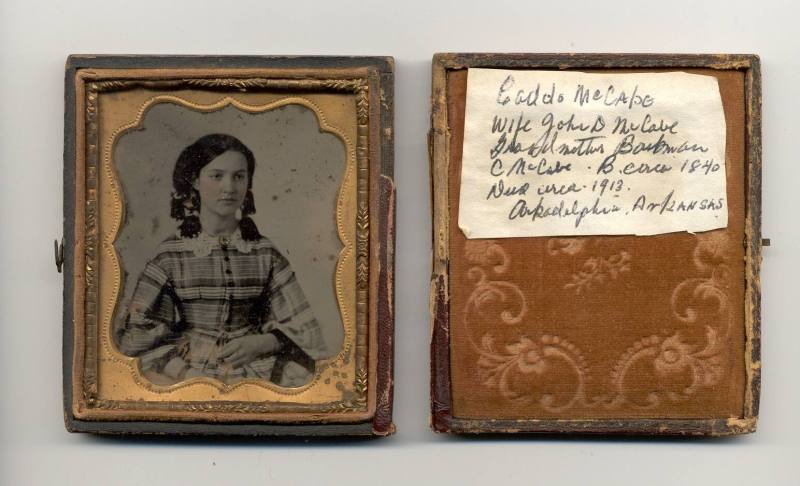 Caddo McCabe
Wife John D McCabe
Grandmother Boatman
C McCabe - B. circa 1840
Died circa - 1913.
Arkadelphia, Arkansas